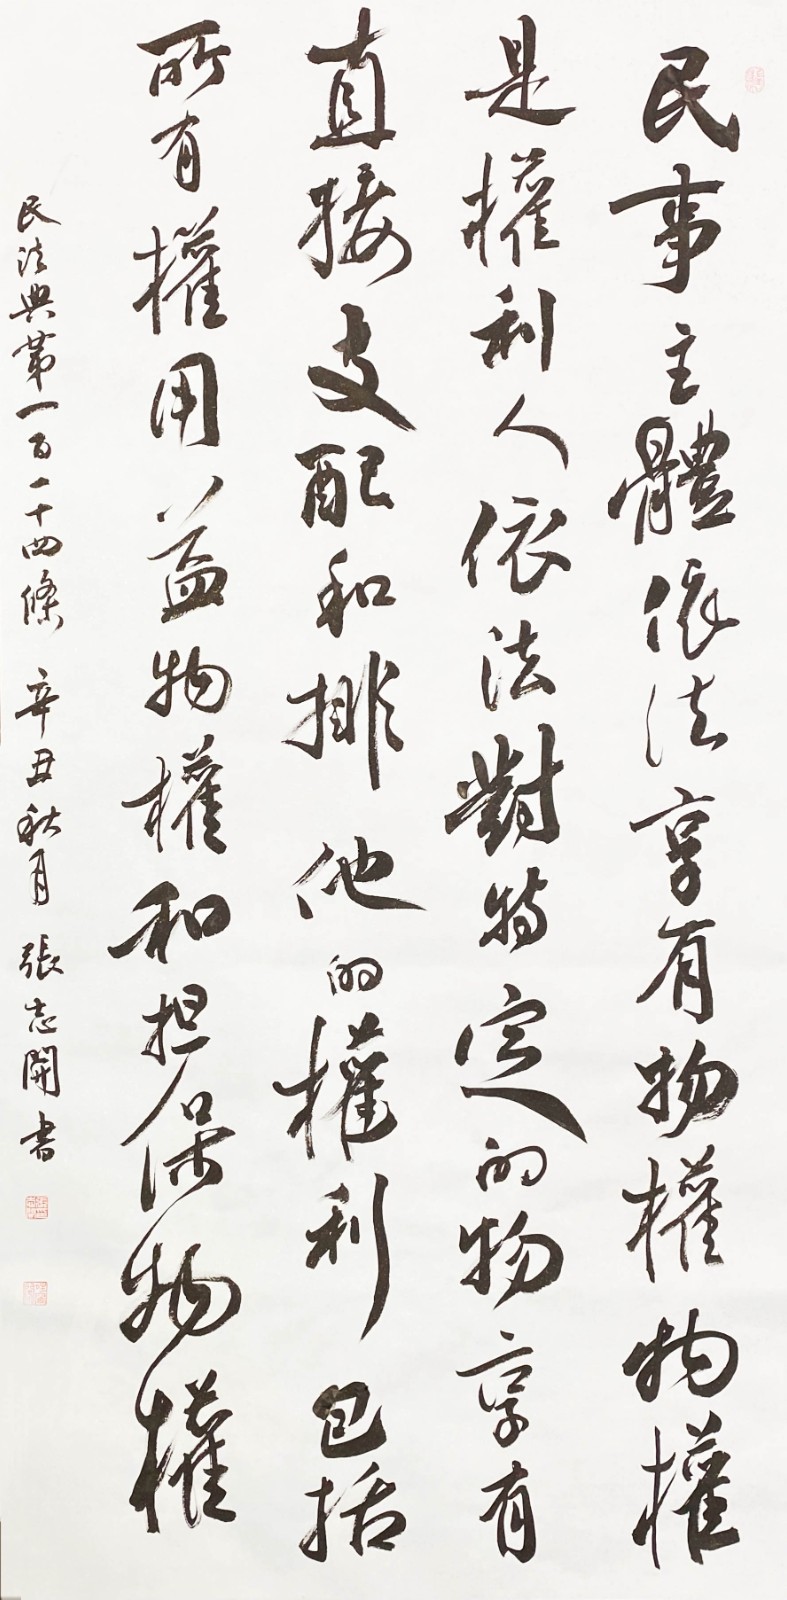 民事主體依法享有物權物權
是權利人依法對特定的物享有
直接支配和排他的權利包括
所有權用益物權和担保物權
民法典第一百一十四條 辛丑秋月 張志開書